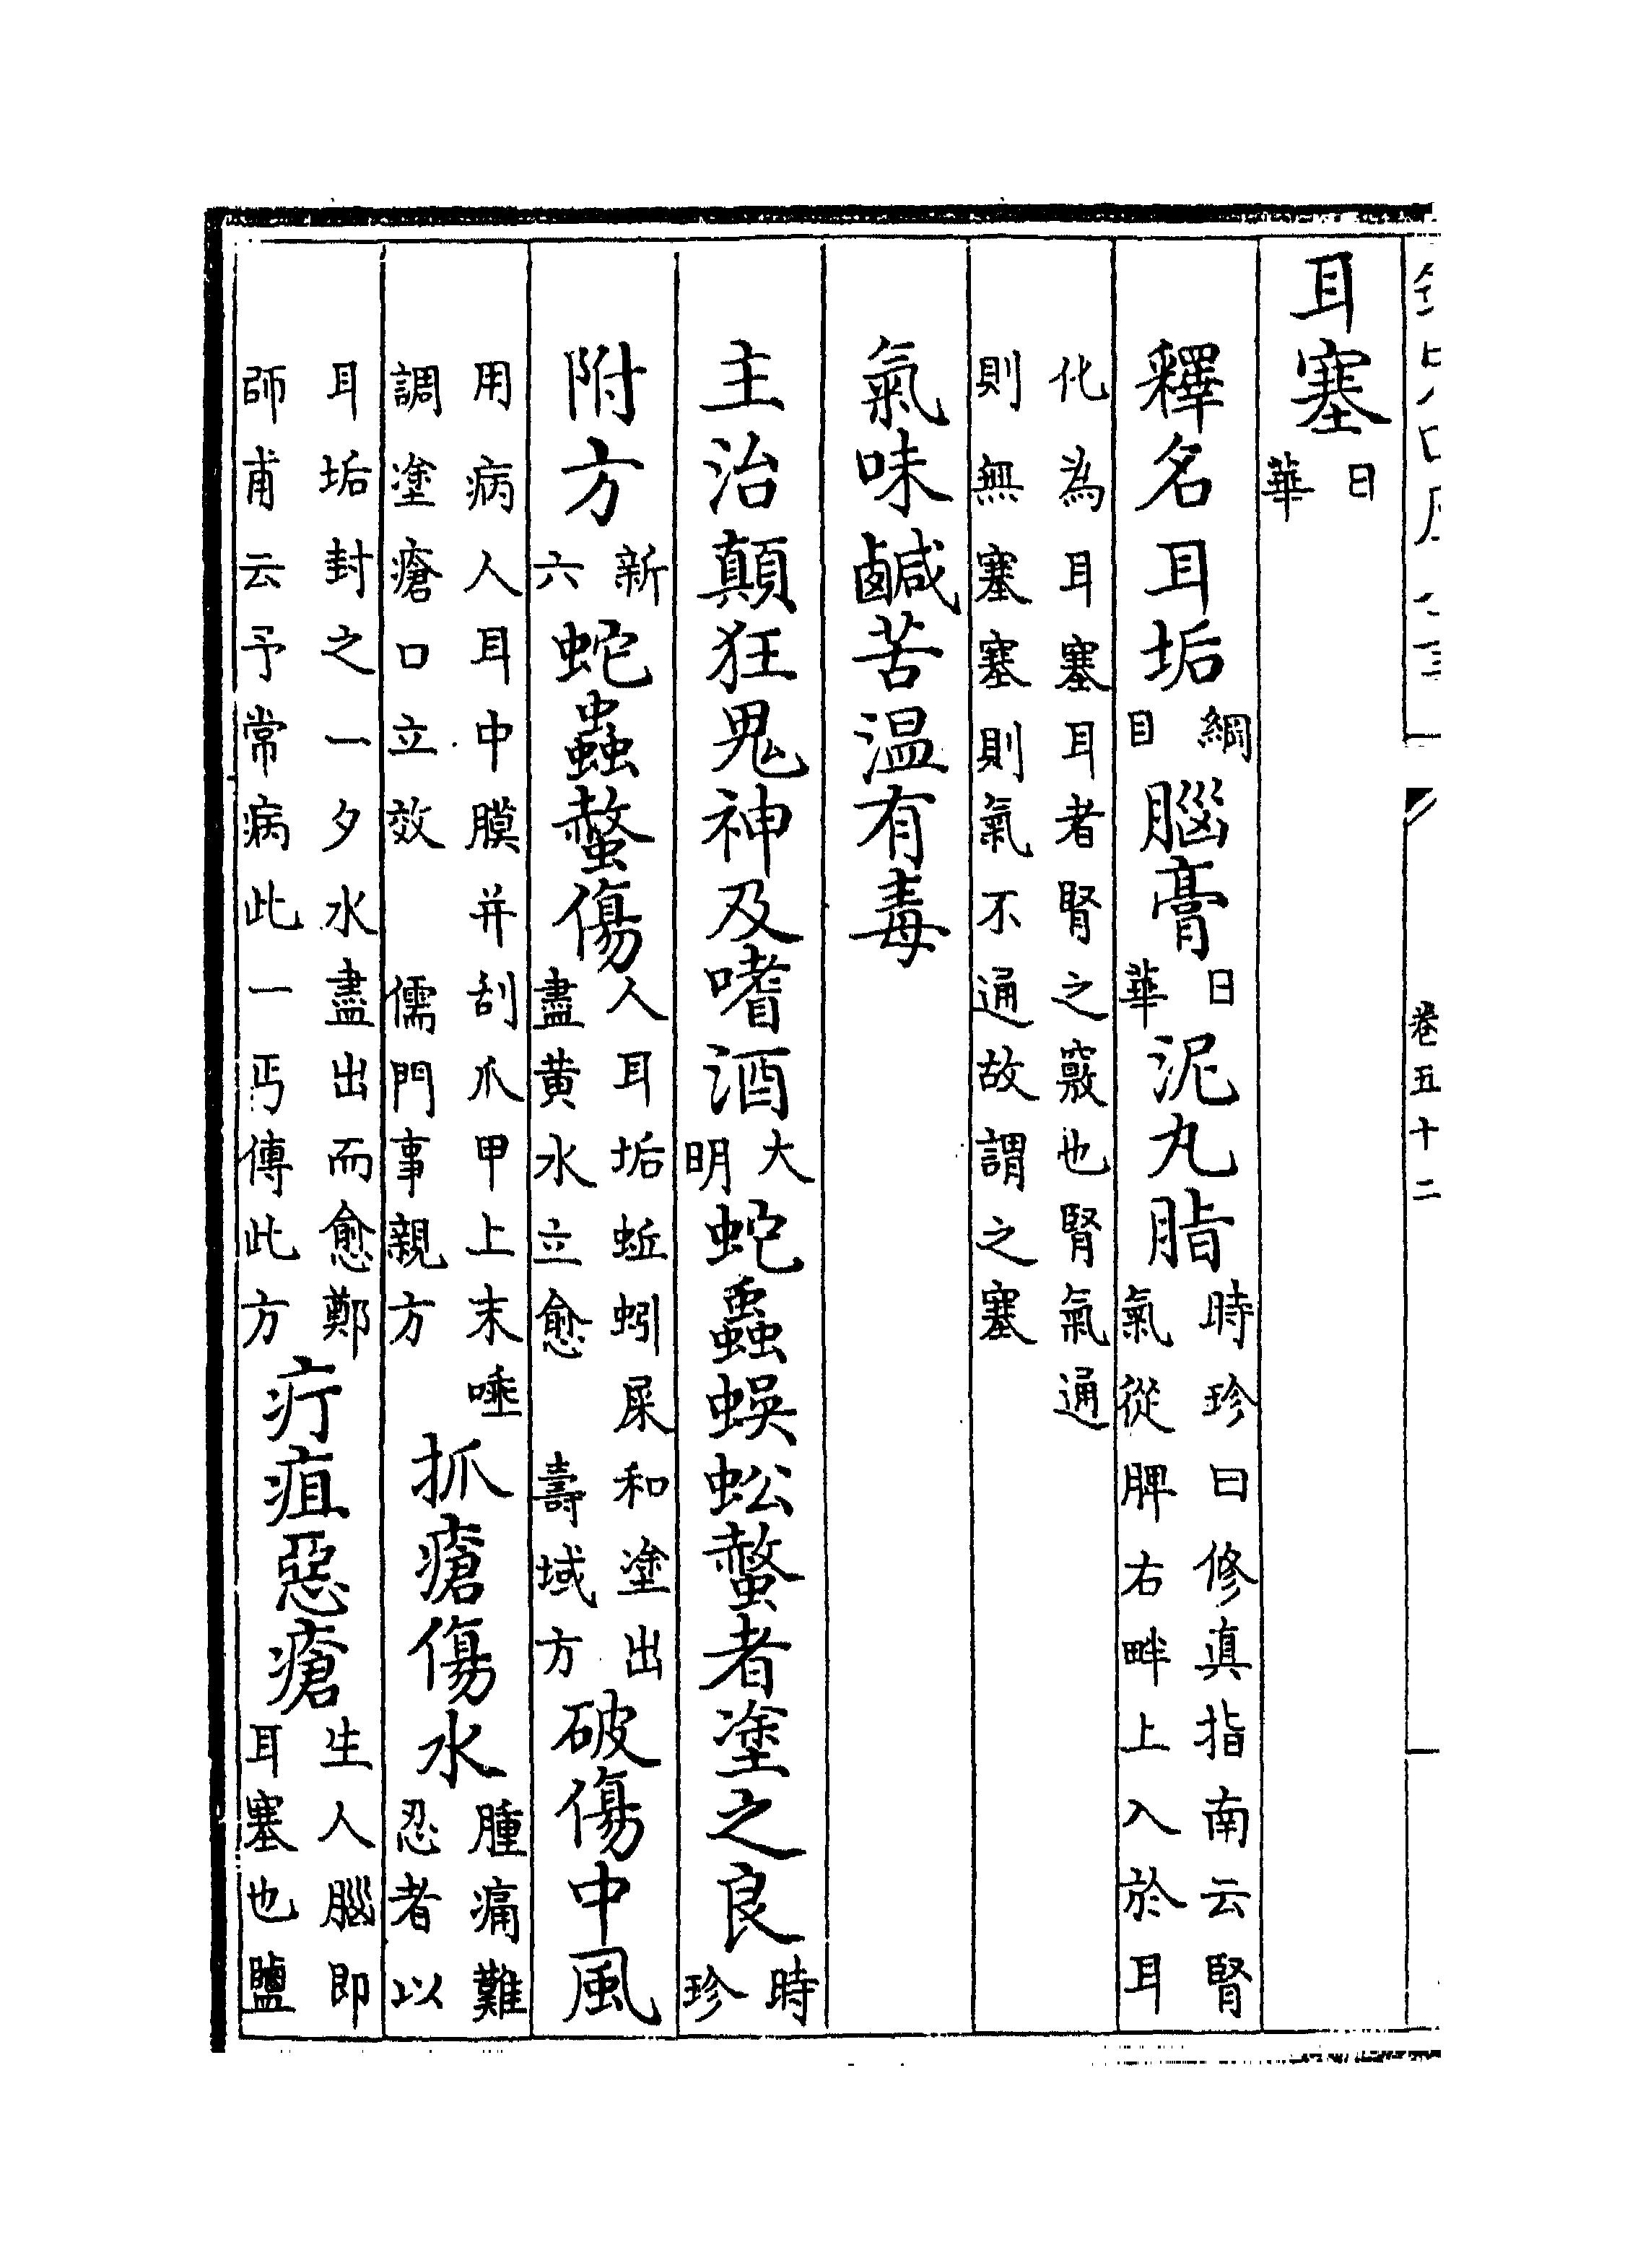 卷五十二
耳塞日華
釋名耳垢綱目腦膏日華泥丸脂時珍曰修真指南云腎氣從脾右畔上入於耳
化為耳塞耳者腎之竅也腎氣通則無塞塞則氣不通故謂之塞
氣味鹹苦温有毒
主治顛狂鬼神及嗜酒大明蛇蟲蜈蚣螫者塗之良時珍
附方新六蛇蟲螫傷人耳垢蚯蚓屎和塗出盡黄水立愈 壽域方破傷中風
用病人耳中膜并刮爪甲上末唾調塗瘡口立效 儒門事親方抓瘡傷水腫痛難忍者以
耳垢封之一夕水盡出而愈鄭師甫云予常病此一丐傳此方疔疽惡瘡生人腦即耳塞也鹽